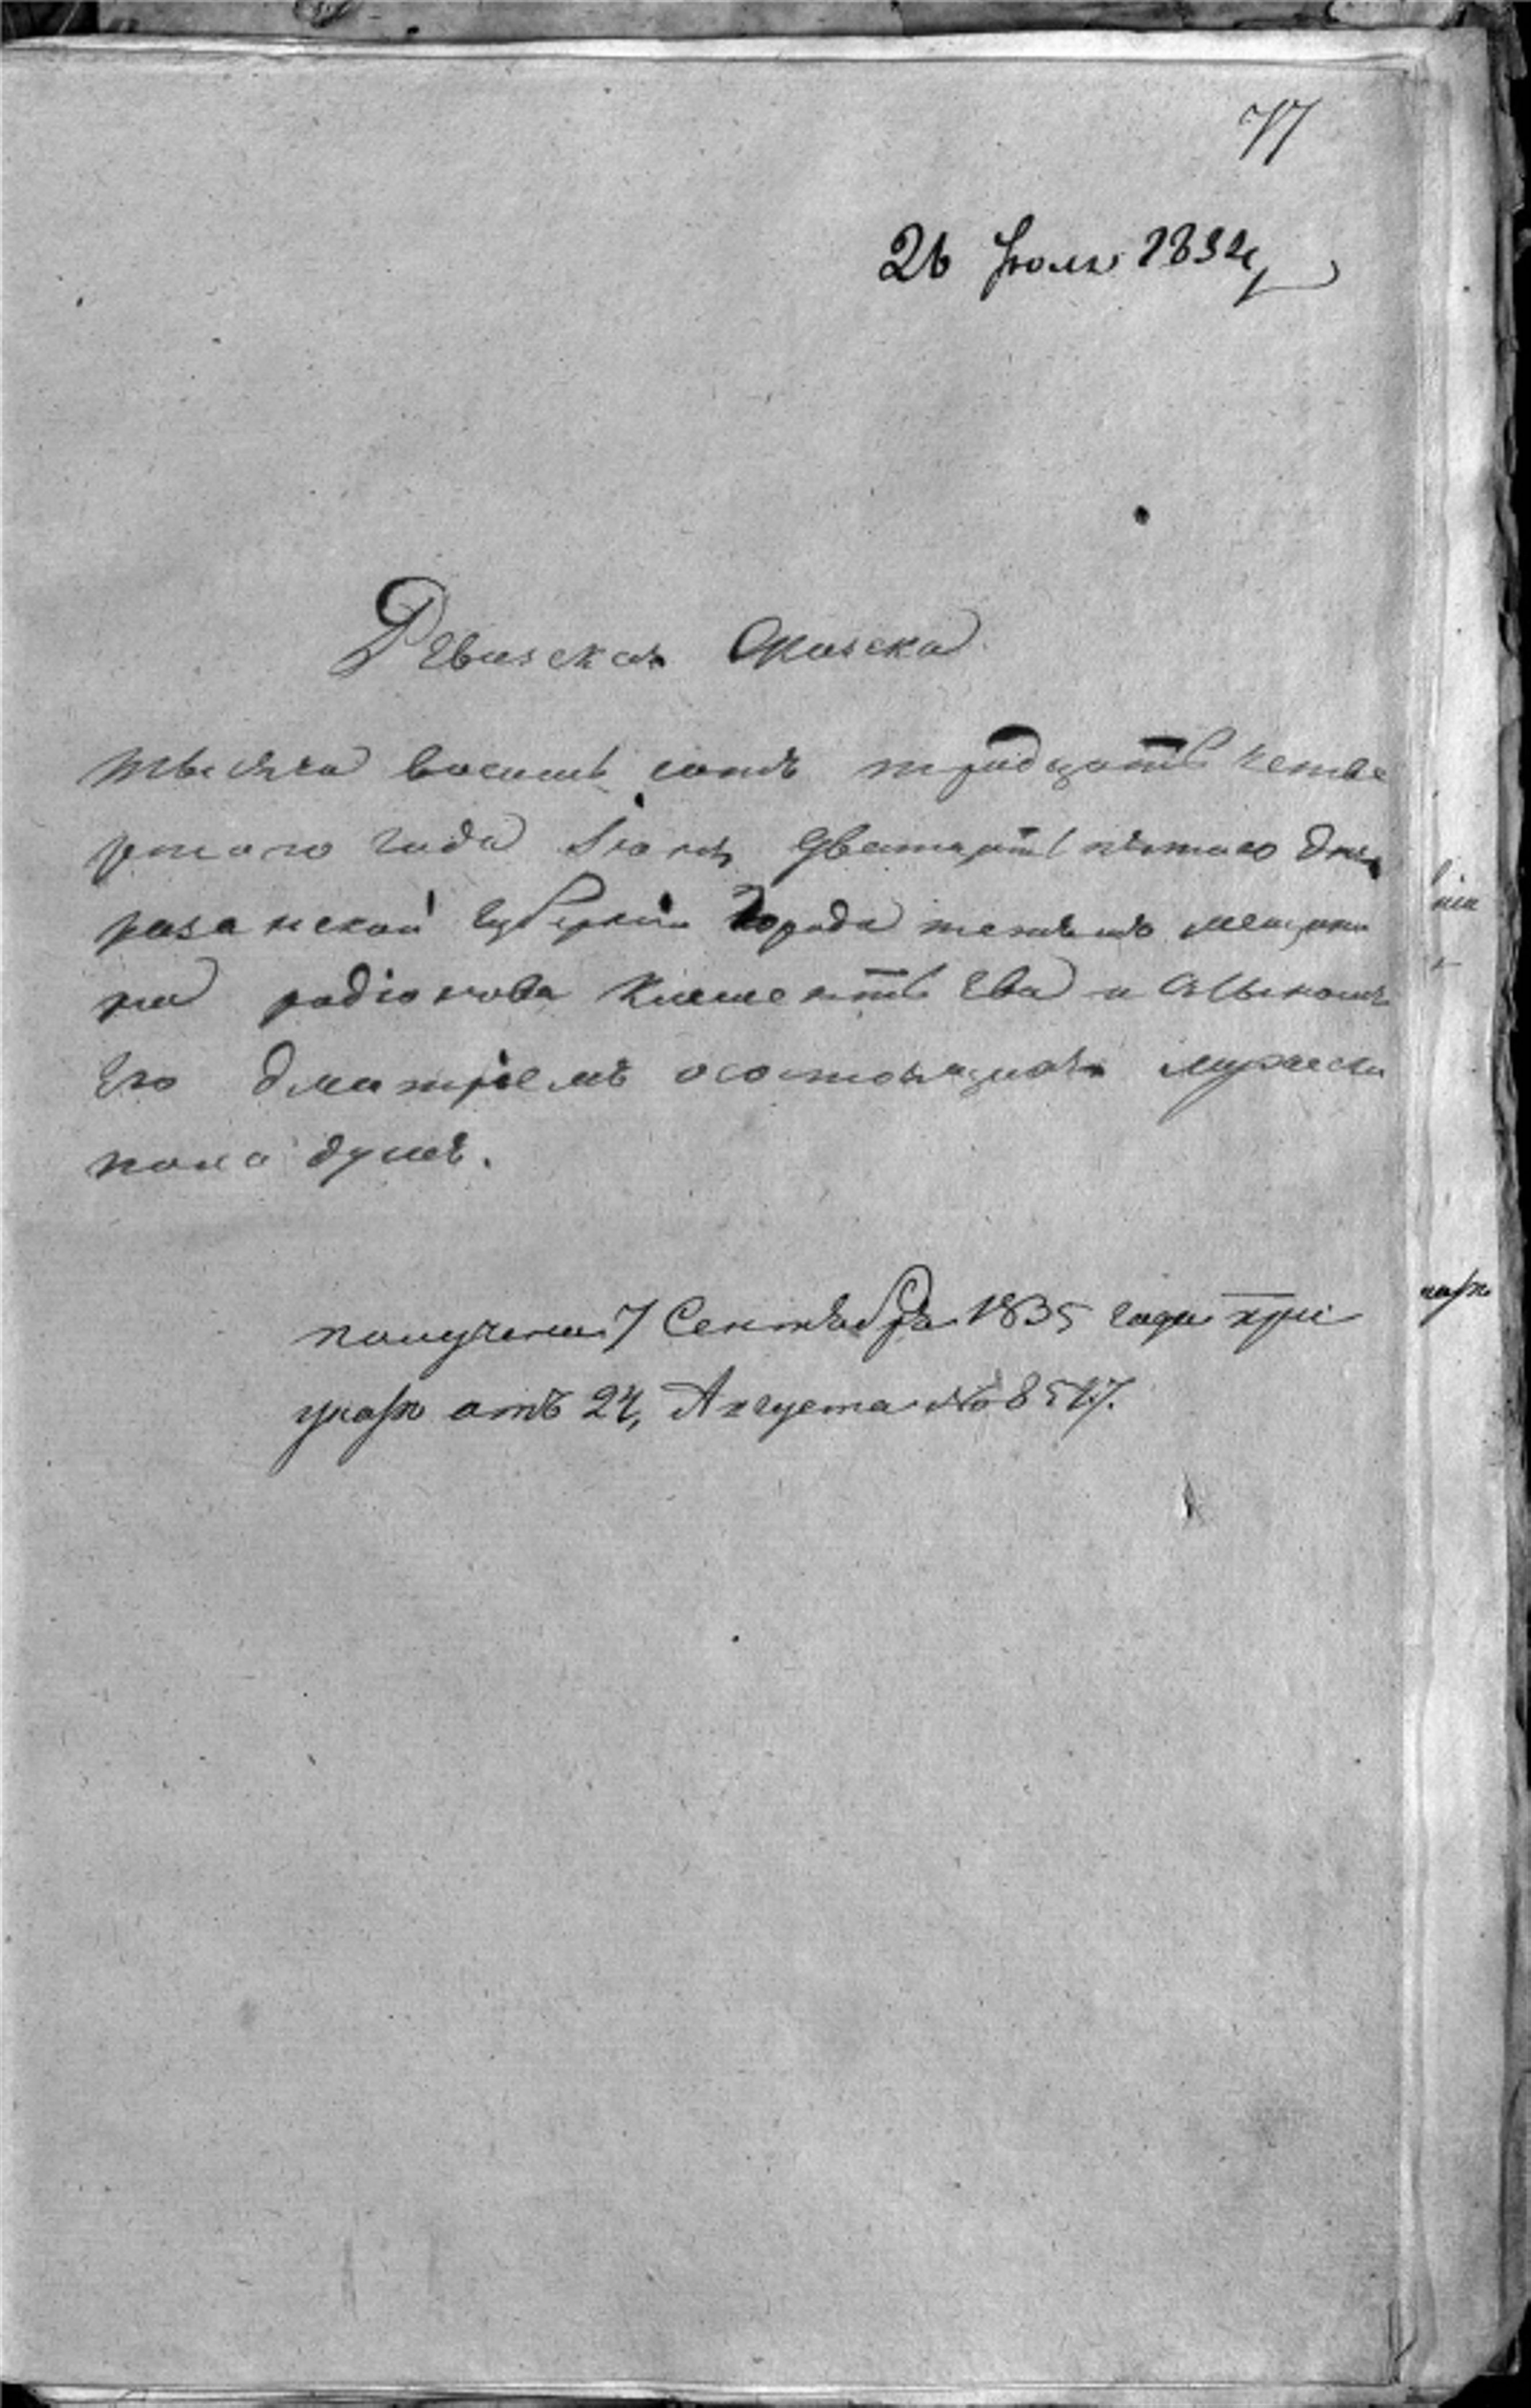 77
26 Июля 1834
Ревизская Скаска
тысяча восемь сотъ тридцать четве
ртого года Іюля дватцать пятаго дня
разанской губерніи города мещани
на радіонова Климентьева и сыномъ
Его дмитріемъ осостоящихъ мужеска
пола душъ.
получена 7 Сентября 1835 года при
указе отъ 24, Августа № 8517.